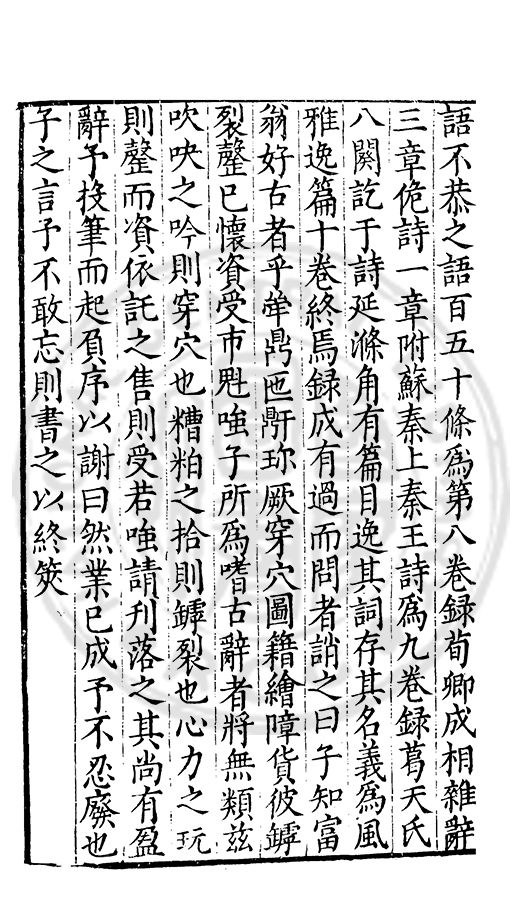 語不恭之語百五十條為第八卷録荀卿成相雜辭
三章佹詩一章附蘇秦上秦王詩為九卷録葛天氏
八闋訖于詩延滌角有篇目逸其詞存其名義為風
雅逸篇十卷終焉録成有過而問者誚之曰子知富
翁好古者乎牟鼎匜鼏珎厥穿穴圖籍繪障貨彼罅
裂罄已懷資受市鬽嗤子所為嗜古辭者將無類兹
吹吷之吟則穿穴也糟粕之拾則罅裂也心力之玩
則罄而資依託之售則受若嗤請刋落之其尚有盈
辭予投筆而起負序以謝曰然業已成予不忍廢也
子之言予不敢忘則書之以終筴